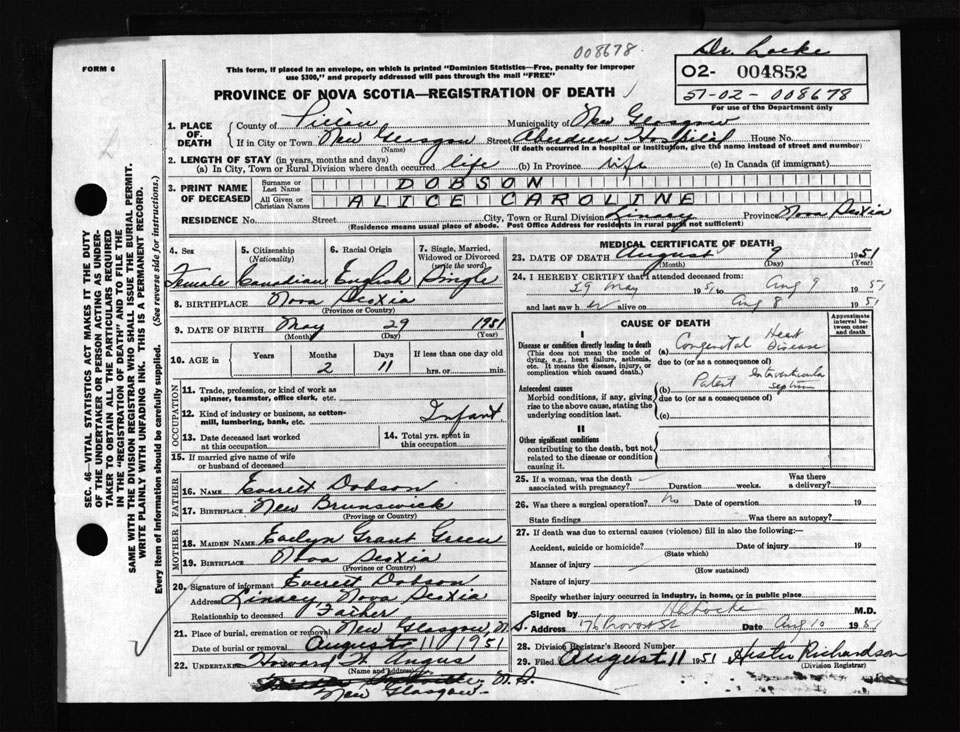 008678.
Dr. Locke
FORM 6
This form, if placed in an envelope, on which is printed "Dominion Statistics—Free, penalty for improper
use $300," and properly addressed will pass through the mail "FREE"
O2- 004852
51-02-008678
For use of the Department only
PROVINCE OF NOVA SCOTIA—REGISTRATION OF DEATH
1. PLACE OF DEATH
County of Pictou Municipality of New Glasgow
If in City or Town New Glasgow Street Aberdeen Hospital House No.
(Name) (If death occurred in a hospital or institution, give the name instead of street and number)
2. LENGTH OF STAY (in years, months and days)
(a) In City, Town or Rural Division where death occurred life (b) In Province life (c) In Canada (if immigrant)
3. PRINT NAME OF DECEASED
Surname or Last Name DOBSON
All Given or Christian Names ALICE CAROLINE
RESIDENCE No. Street City, Town or Rural Division Linacy Province Nova Scotia
(Residence means usual place of abode. Post Office Address for residents in rural parts not sufficient)
4. Sex
Female
5. Citizenship (Nationality)
Canadian
6. Racial Origin
English
7. Single, Married, Widowed or Divorced (write the word)
Single
8. BIRTHPLACE Nova Scotia
(Province or Country)
9. DATE OF BIRTH May 29 1951
(Month) (Day) (Year)
10. AGE in Years Months Days If less than one day old
2 11 hrs. or min.
OCCUPATION
11. Trade, profession, or kind of work as
spinner, teamster, office clerk, etc.
12. Kind of industry or business, as cotton-
mill, lumbering, bank, etc. Infant.
13. Date deceased last worked
at this occupation
14. Total yrs. spent in
this occupation
15. If married give name of wife
or husband of deceased
FATHER
16. NAME Everett Dobson
17. BIRTHPLACE New Brunswick
(Province or Country)
MOTHER
18. MAIDEN NAME Evelyn Grant Green
19. BIRTHPLACE Nova Scotia
(Province or Country)
20. Signature of informant Everett Dobson
Address Linacy Nova Scotia
Relationship to deceased Father
21. Place of burial, cremation or removal New Glasgow, N.S.
Date of burial or removal August 11 1951
22. UNDERTAKER Howard H. Angus
(Name and address)
New Glasgow N.S.
MEDICAL CERTIFICATE OF DEATH
23. DATE OF DEATH August 9 1951
(Month) (Day) (Year)
24. I HEREBY CERTIFY that I attended deceased from:
29 May 1951 to Aug 9 1951
and last saw h er alive on Aug 8 1951
CAUSE OF DEATH
Approximate interval between onset and death
I
Disease or condition directly leading to death
(This does not mean the mode of
dying, e.g., heart failure, asthenia,
etc. It means the disease, injury, or
complication which caused death.)
(a) Congenital Heart Disease
due to (or as a consequence of)
Antecedent causes
Morbid conditions, if any, giving
rise to the above cause, stating the
underlying condition last.
(b) Patent Interventricular septum
due to (or as a consequence of)
(c)
II
Other significant conditions
contributing to the death, but not
related to the disease or condition
causing it.
25. If a woman, was the death
associated with pregnancy? Duration weeks. Was there a delivery?
26. Was there a surgical operation? No Date of operation 19
State findings Was there an autopsy?
27. If death was due to external causes (violence) fill in also the following:
Accident, suicide or homicide? Date of injury 19
(State which)
Manner of injury
(How sustained)
Nature of injury
Specify whether injury occurred in industry, in home, or in public place
Signed by Locke M.D.
Address 176 Provost St Date Aug 10 1951
28. Division Registrar's Record Number
29. Filed August 11 1951 Hester Richardson
(Division Registrar)
SEC. 46—VITAL STATISTICS ACT MAKES IT THE DUTY
OF THE UNDERTAKER OR PERSON ACTING AS UNDER-
TAKER TO OBTAIN ALL THE PARTICULARS REQUIRED
IN THE "REGISTRATION OF DEATH" AND TO FILE THE
SAME WITH THE DIVISION REGISTRAR WHO SHALL ISSUE THE BURIAL PERMIT.
WRITE PLAINLY WITH UNFADING INK. THIS IS A PERMANENT RECORD.
Every item of information should be carefully supplied. (See reverse side for instructions.)